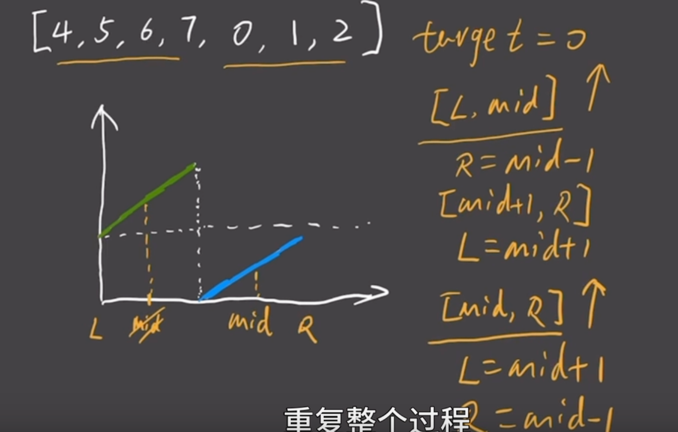 [4, 5, 6, 7, 0, 1, 2]
target = 0
[L, mid] ↑
R = mid-1
[mid+1, R]
L = mid+1
[mid, R] ↑
L = mid+1
R = mid-1
L mid mid R
重复整个过程